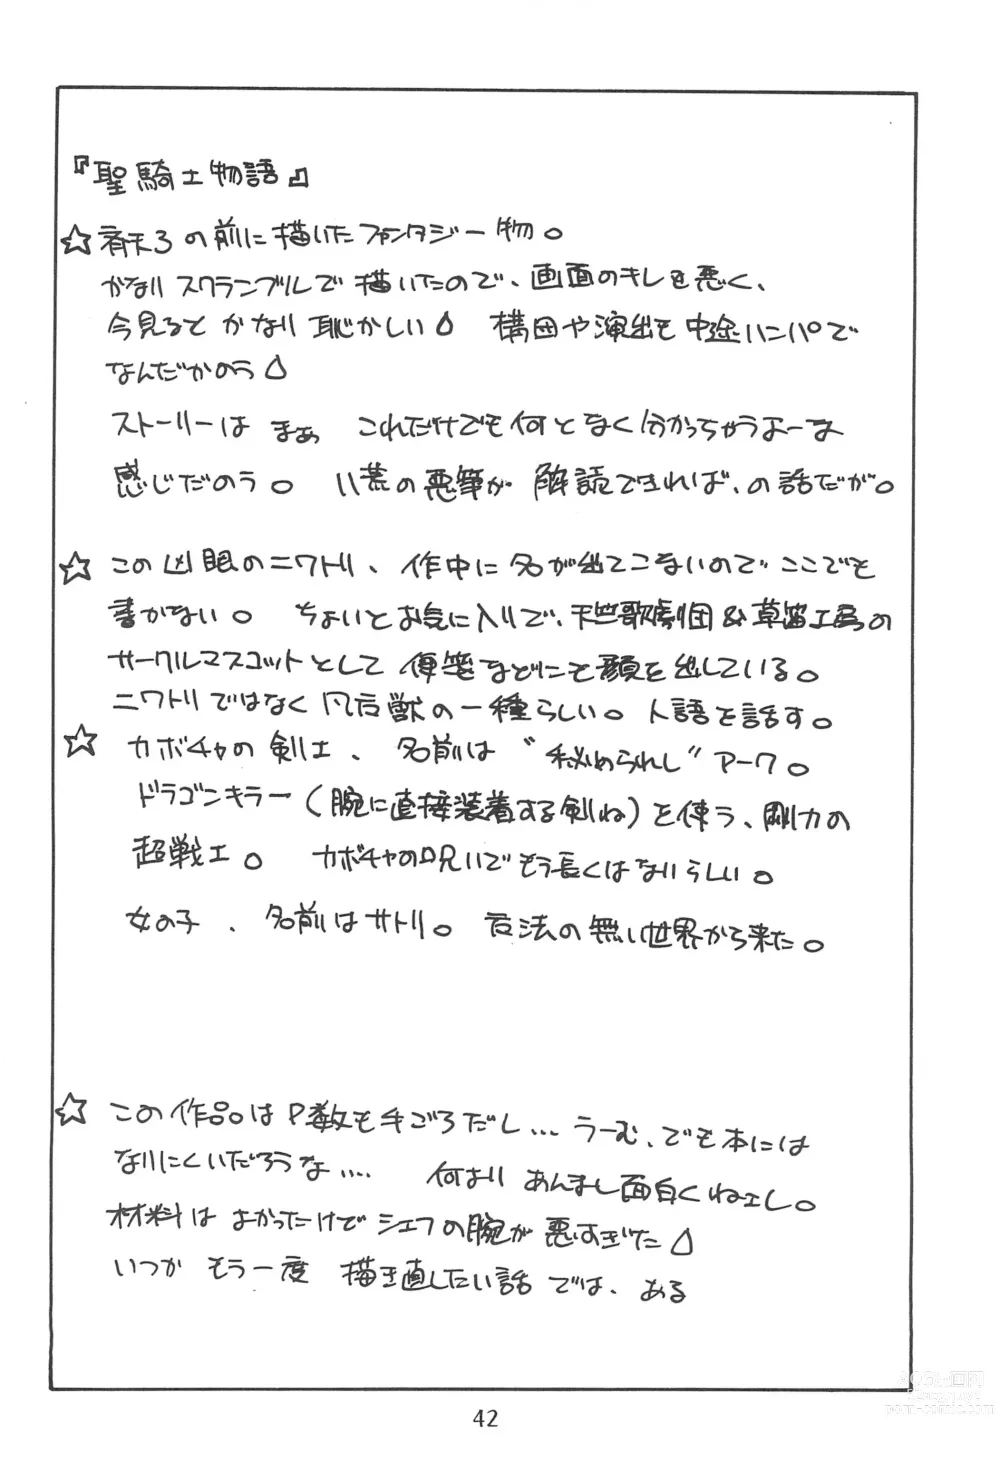 『聖騎士物語』
☆斉天3の前に描いたファンタジー物。
かなりスクランブルで描いたので、画面のキレも悪く、
今見るとかなり恥かしい 構図や演出も中途ハンパで
なんだかのう
ストーリーは まぁ これだけでも何となく分かっちゃうよーな
感じだのう。 八荒の悪筆が 解読できれば、の話だが。
☆この凶眼のニワトリ、作中に名が出てこないのでここでも
書かない。 ちょいとお気に入りで、天竺歌劇団&草笛工房の
サークルマスコットとして 便箋などにも顔を出している。
ニワトリではなく 獣の一種らしい。人語を話す。
☆カボチャの剣士、名前は“秘められし”アーク。
ドラゴンキラー(腕に直接装着する剣ね)を使う、剛力の
超戦士。 カボチャの呪いでもう長くはないらしい。
女の子、名前はサトリ。 法の無い世界から来た。
☆この作品はP数も手ごろだし... うーむ、でも本には
なりにくいだろうな.... 何より あんまし面白くねェし。
材料は よかったけどシェフの腕が悪すぎた
いつか もう一度 描き直したい話 では、ある
42